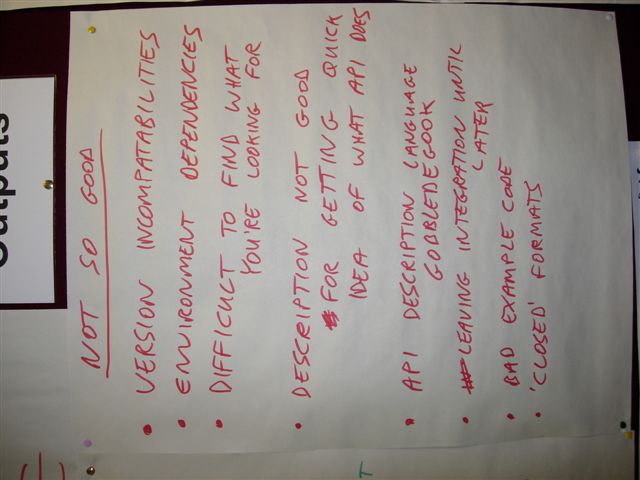 Outputs
NOT SO GOOD
• VERSION INCOMPATABILITIES
• ENVIRONMENT DEPENDENCIES
• DIFFICULT TO FIND WHAT
YOU'RE LOOKING FOR
• DESCRIPTION NOT GOOD
FOR GETTING QUICK
IDEA OF WHAT API DOES
• API DESCRIPTION LANGUAGE
GOBBLEDEGOOK
• LEAVING INTEGRATION UNTIL
LATER
• BAD EXAMPLE CODE
• 'CLOSED' FORMATS
T